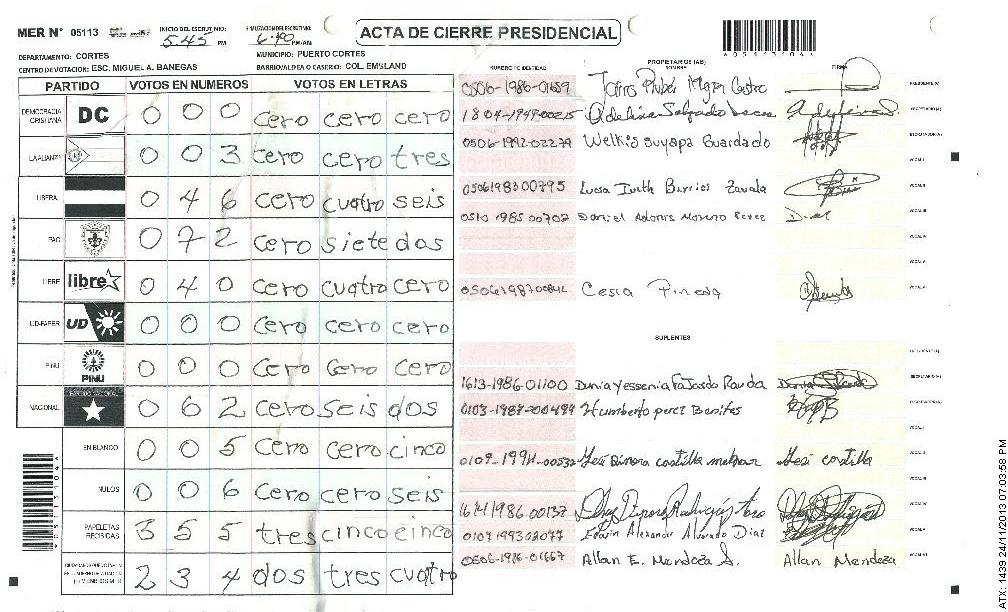 MER Nº 05113
INICIO DEL ESCRUTINIO: 5:45 PM
ACTA DE CIERRE PRESIDENCIAL
DEPARTAMENTO: CORTES
MUNICIPIO: PUERTO CORTES
CENTRO DE VOTACION: ESC. MIGUEL A. BANEGAS
BARRIO/ALDEA O CASERIO: COL. EMSLAND
PARTIDO VOTOS EN NUMEROS VOTOS EN LETRAS
DEMOCRACIA CRISTIANA DC 0 0 0 cero cero cero
LA ALIANZA 0 0 3 cero cero tres
LIBERAL 0 4 6 cero cuatro seis
PAC 0 7 2 cero siete dos
LIBRE libre 0 4 0 cero cuatro cero
UD-FAPER UD 0 0 0 cero cero cero
PINU PINU 0 0 0 cero cero cero
NACIONAL 0 6 2 cero seis dos
EN BLANCO 0 0 5 cero cero cinco
NULOS 0 0 6 cero cero seis
PAPELETAS RECIBIDAS 3 5 5 tres cinco cinco
2 3 4 dos tres cuatro
NUMERO DE IDENTIDAD
PROPIETARIOS (AS)
NOMBRE
FIRMA
PRESIDENTE (A)
Adelina Salgado
SECRETARIO (A)
0506-1992-02279 Welkis Suyapa Guardado
ESCRUTADOR (A)
0506198300795 Barrios Zavala
0510 1985 00702 Daniel Moreno Perez
Cesia Pineda
SUPLENTES
1613-1986-01100 Dunia Yessenia Fajardo
Humberto perez Benites
costilla
1614198600137
Edwin Alexander Alvarado Diaz
0506-1986-01667 Allan E. Mendoza S. Allan Mendoza
ATX: 1439 24/11/2013 07:03:58 PM